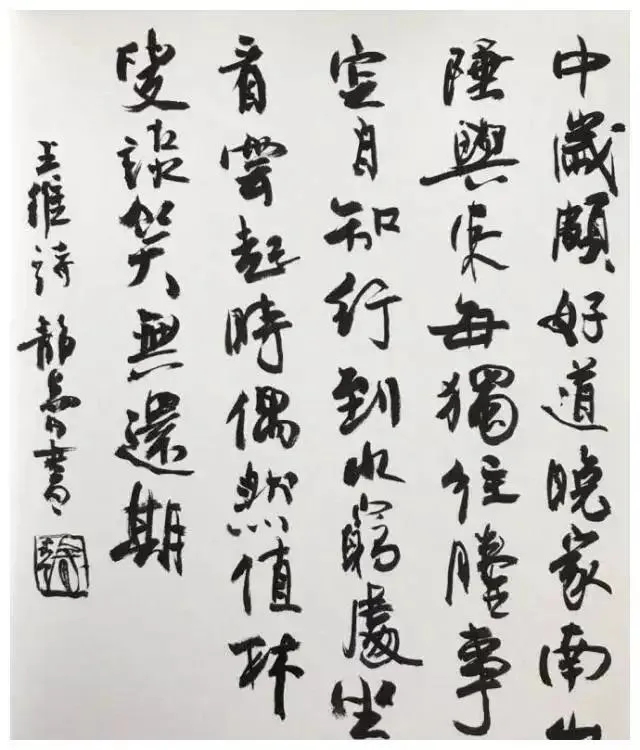 中歲頗好道晚家南山
陲興來每獨往勝事
空自知行到水窮處坐
看雲起時偶然值林
叟談笑無還期
王維詩 書